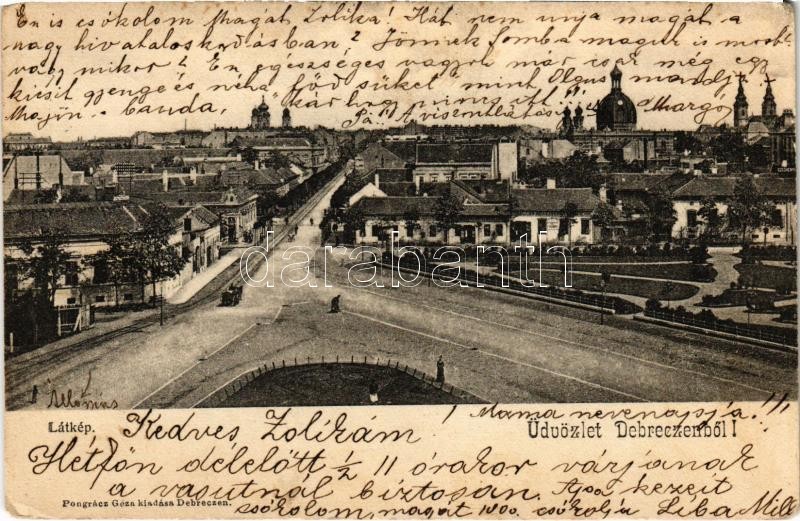 Én is csókolom Magát Zolika! Hát nem unja magát a
nagy hivataloskodásban? Jönnek
vagy mikor? Én egészséges vagyok már csak még egy
kicsit gyenge és néha "főd süket" mint Olgus mondja
banda, kár hogy nincs itt! Margo
Pá!
darabanth
Állomás
Látkép.
Üdvözlet Debreczenből!
Mama nevenapsja!!!
Kedves Zolikám
Hétfőn délelőtt ½ 11 órakor várjanak
a vasutnál biztosan. Apa kezeit
csókolom, magát 1000. csókolja Liba
Pongrácz Géza kiadása Debreczen.